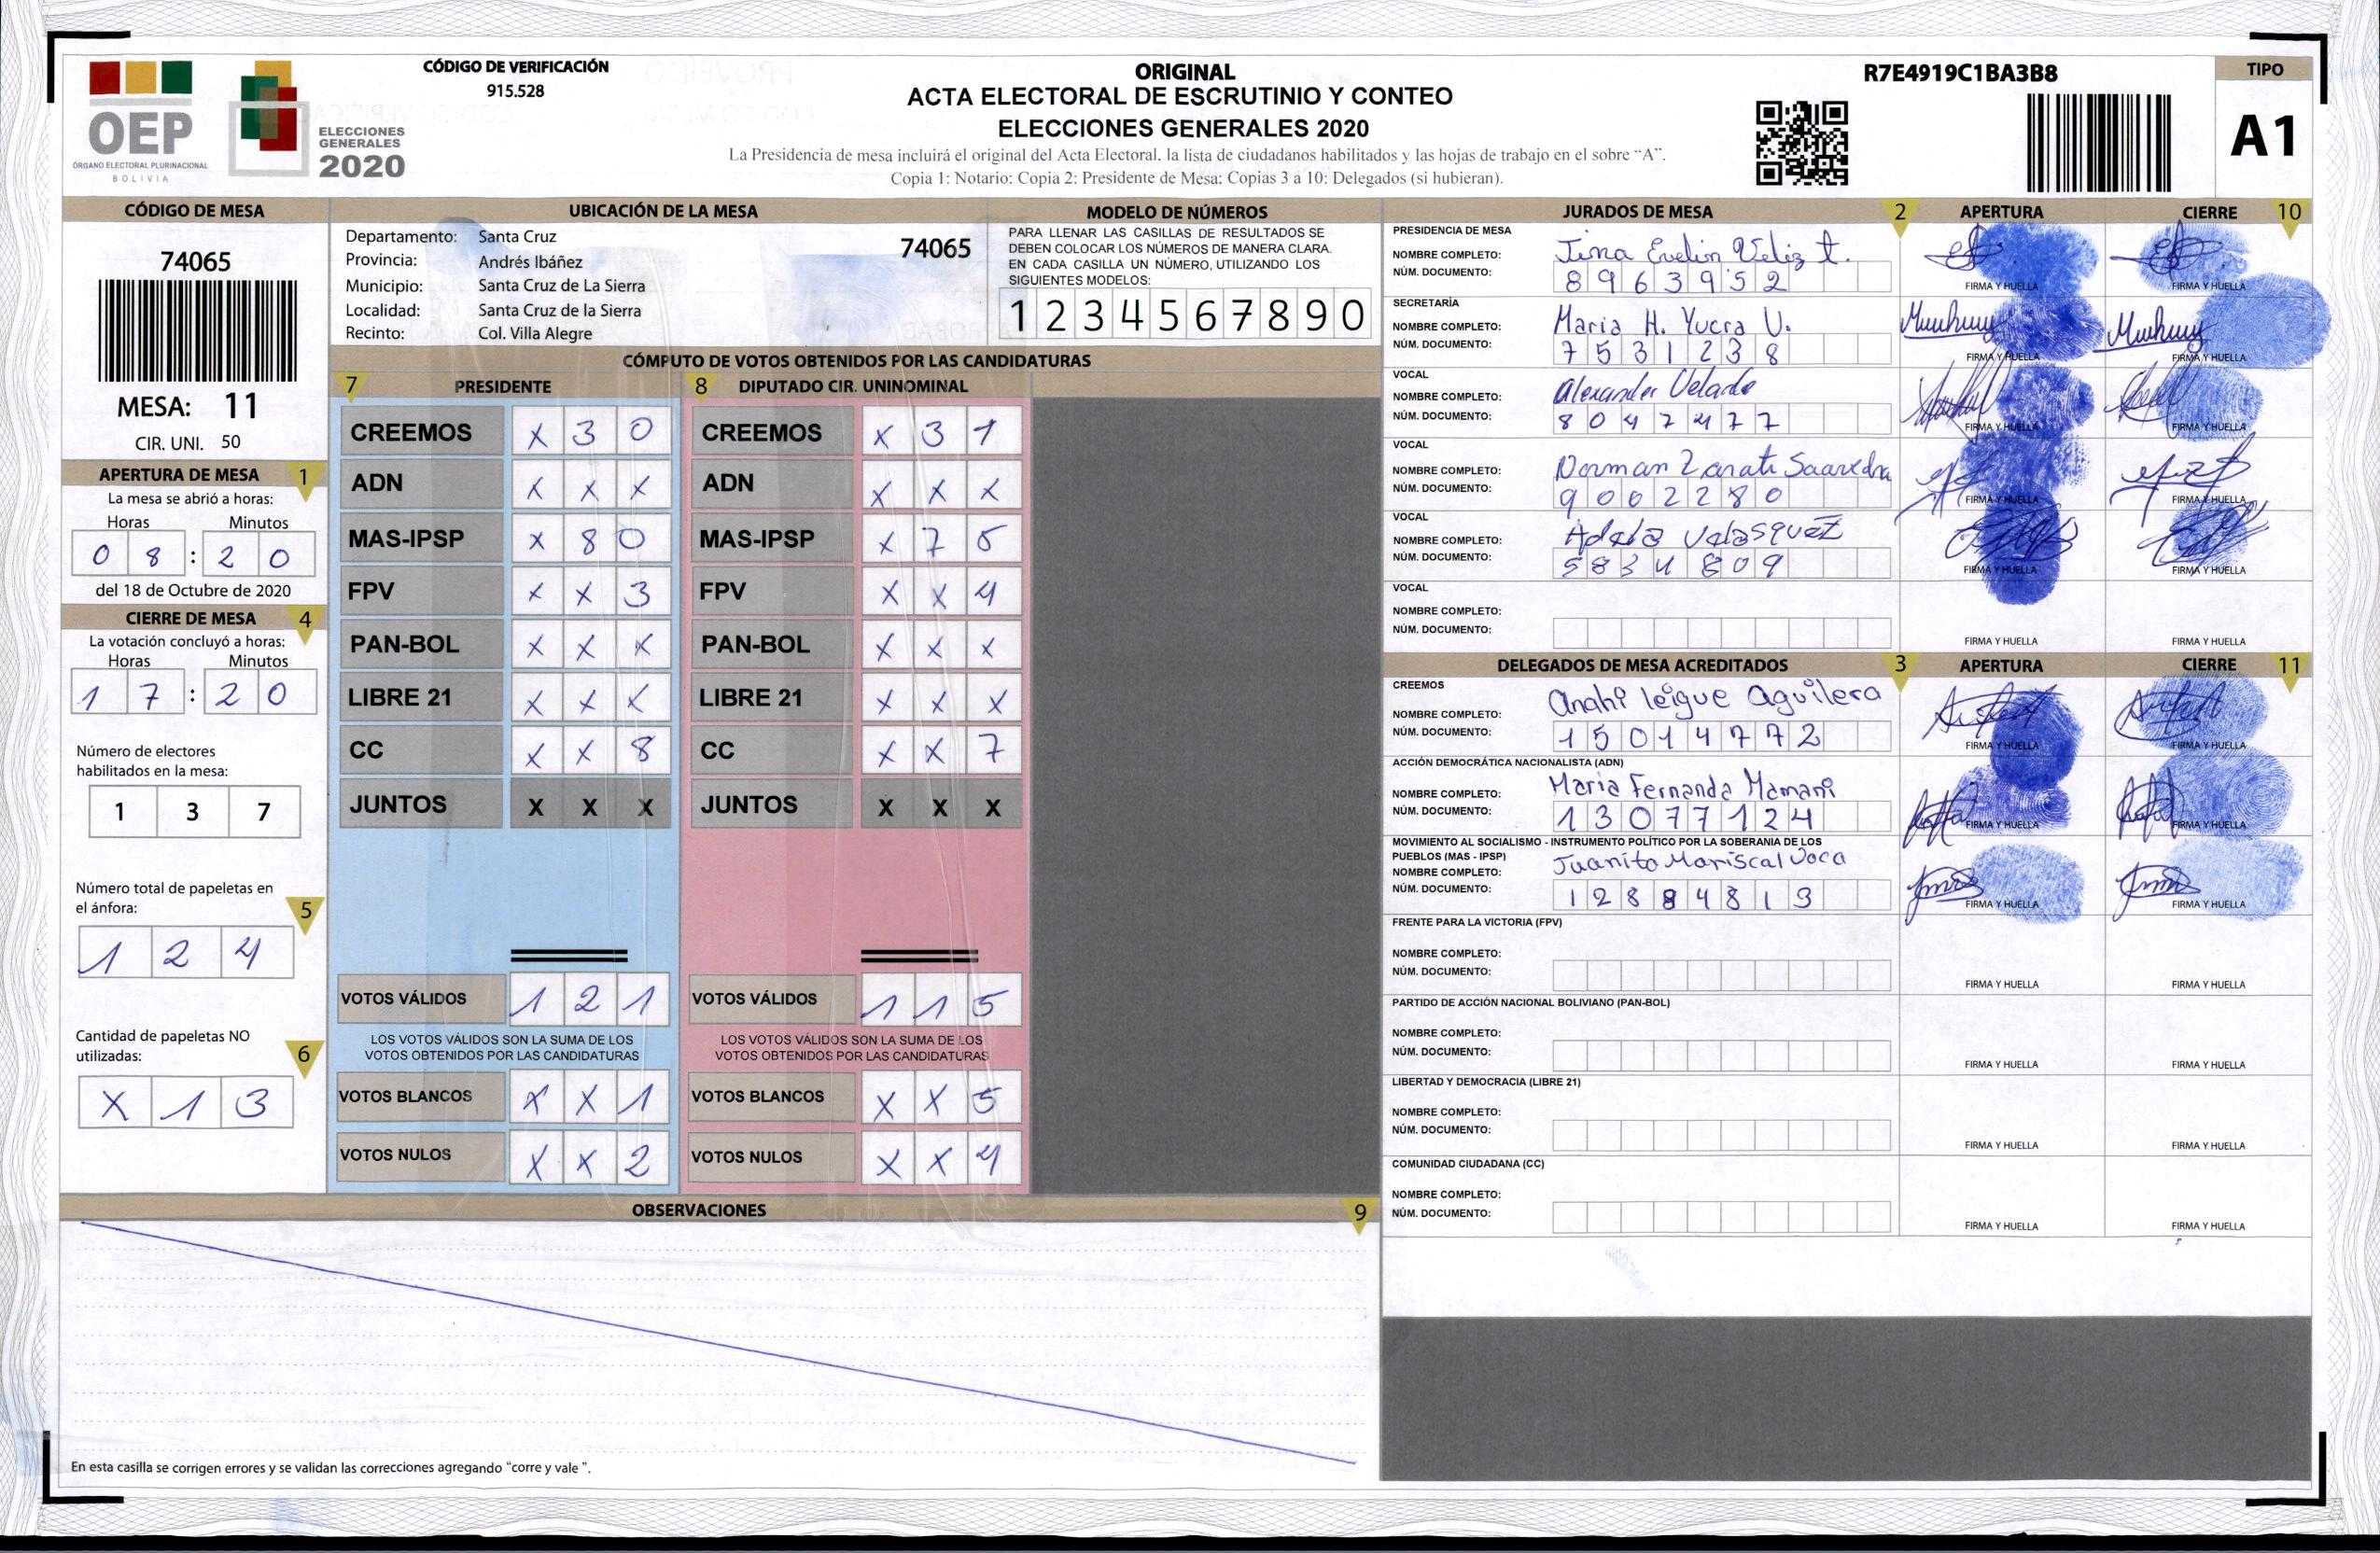 CÓDIGO DE VERIFICACIÓN
915.528
OEP
ÓRGANO ELECTORAL PLURINACIONAL
BOLIVIA
ELECCIONES
GENERALES
2020
ORIGINAL
ACTA ELECTORAL DE ESCRUTINIO Y CONTEO
ELECCIONES GENERALES 2020
La Presidencia de mesa incluirá el original del Acta Electoral, la lista de ciudadanos habilitados y las hojas de trabajo en el sobre "A".
Copia 1: Notario; Copia 2: Presidente de Mesa; Copias 3 a 10: Delegados (si hubieran).
R7E4919C1BA3B8
TIPO
A1
CÓDIGO DE MESA
74065
MESA: 11
CIR. UNI. 50
APERTURA DE MESA 1
La mesa se abrió a horas:
Horas Minutos
0 8 : 2 0
del 18 de Octubre de 2020
CIERRE DE MESA 4
La votación concluyó a horas:
Horas Minutos
1 7 : 2 0
Número de electores
habilitados en la mesa:
1 3 7
Número total de papeletas en
el ánfora: 5
1 2 4
Cantidad de papeletas NO
utilizadas: 6
X 1 3
UBICACIÓN DE LA MESA
Departamento: Santa Cruz
74065
Provincia: Andrés Ibáñez
Municipio: Santa Cruz de La Sierra
Localidad: Santa Cruz de la Sierra
Recinto: Col. Villa Alegre
MODELO DE NÚMEROS
PARA LLENAR LAS CASILLAS DE RESULTADOS SE
DEBEN COLOCAR LOS NÚMEROS DE MANERA CLARA.
EN CADA CASILLA UN NÚMERO, UTILIZANDO LOS
SIGUIENTES MODELOS:
1 2 3 4 5 6 7 8 9 0
CÓMPUTO DE VOTOS OBTENIDOS POR LAS CANDIDATURAS
7 PRESIDENTE
CREEMOS X 3 0
ADN X X X
MAS-IPSP X 8 0
FPV X X 3
PAN-BOL X X X
LIBRE 21 X X X
CC X X 8
JUNTOS X X X
VOTOS VÁLIDOS 1 2 1
LOS VOTOS VÁLIDOS SON LA SUMA DE LOS
VOTOS OBTENIDOS POR LAS CANDIDATURAS
VOTOS BLANCOS X X 1
VOTOS NULOS X X 2
8 DIPUTADO CIR. UNINOMINAL
CREEMOS X 3 1
ADN X X X
MAS-IPSP X 7 5
FPV X X 4
PAN-BOL X X X
LIBRE 21 X X X
CC X X 7
JUNTOS X X X
VOTOS VÁLIDOS 1 1 5
LOS VOTOS VÁLIDOS SON LA SUMA DE LOS
VOTOS OBTENIDOS POR LAS CANDIDATURAS
VOTOS BLANCOS X X 5
VOTOS NULOS X X 4
OBSERVACIONES 9
En esta casilla se corrigen errores y se validan las correcciones agregando "corre y vale ".
JURADOS DE MESA 2 APERTURA CIERRE 10
PRESIDENCIA DE MESA
NOMBRE COMPLETO: Evelin Veliz t.
NÚM. DOCUMENTO: 8963952
FIRMA Y HUELLA FIRMA Y HUELLA
SECRETARÍA
NOMBRE COMPLETO: Maria H. Yucra V.
NÚM. DOCUMENTO: 7531238
FIRMA Y HUELLA FIRMA Y HUELLA
VOCAL
NOMBRE COMPLETO: Alexander Velado
NÚM. DOCUMENTO: 8047477
FIRMA Y HUELLA FIRMA Y HUELLA
VOCAL
NOMBRE COMPLETO: Norman Zarate Saavedra
NÚM. DOCUMENTO: 9002280
FIRMA Y HUELLA FIRMA Y HUELLA
VOCAL
NOMBRE COMPLETO: Adela Velasquez
NÚM. DOCUMENTO: 5834809
FIRMA Y HUELLA FIRMA Y HUELLA
VOCAL
NOMBRE COMPLETO:
NÚM. DOCUMENTO:
FIRMA Y HUELLA FIRMA Y HUELLA
DELEGADOS DE MESA ACREDITADOS 3 APERTURA CIERRE 11
CREEMOS
NOMBRE COMPLETO: Anahi leigue Aguilera
NÚM. DOCUMENTO: 15014772
FIRMA Y HUELLA FIRMA Y HUELLA
ACCIÓN DEMOCRÁTICA NACIONALISTA (ADN)
NOMBRE COMPLETO: Maria Fernanda Mamani
NÚM. DOCUMENTO: 13077124
FIRMA Y HUELLA FIRMA Y HUELLA
MOVIMIENTO AL SOCIALISMO - INSTRUMENTO POLÍTICO POR LA SOBERANIA DE LOS
PUEBLOS (MAS - IPSP)
NOMBRE COMPLETO: Juanito Mariscal
NÚM. DOCUMENTO: 12884813
FIRMA Y HUELLA FIRMA Y HUELLA
FRENTE PARA LA VICTORIA (FPV)
NOMBRE COMPLETO:
NÚM. DOCUMENTO:
FIRMA Y HUELLA FIRMA Y HUELLA
PARTIDO DE ACCIÓN NACIONAL BOLIVIANO (PAN-BOL)
NOMBRE COMPLETO:
NÚM. DOCUMENTO:
FIRMA Y HUELLA FIRMA Y HUELLA
LIBERTAD Y DEMOCRACIA (LIBRE 21)
NOMBRE COMPLETO:
NÚM. DOCUMENTO:
FIRMA Y HUELLA FIRMA Y HUELLA
COMUNIDAD CIUDADANA (CC)
NOMBRE COMPLETO:
NÚM. DOCUMENTO:
FIRMA Y HUELLA FIRMA Y HUELLA